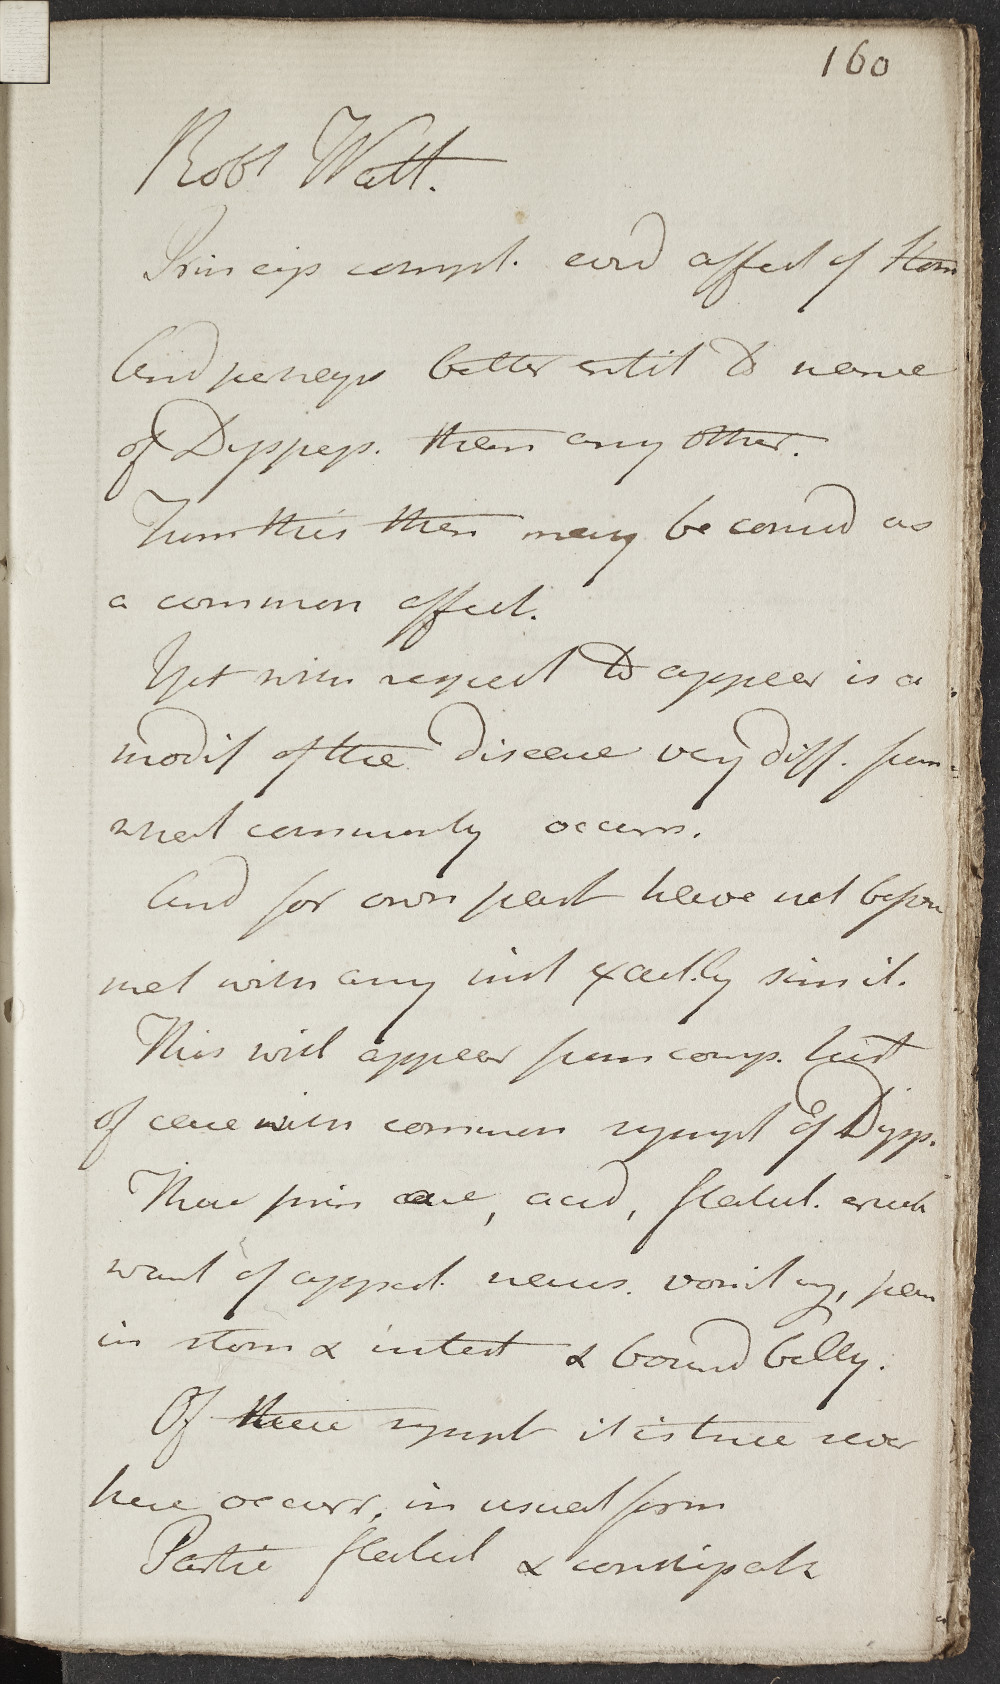 160
Robt Watt.
Princip compl. evid affect of stom
And perhaps better entitl to name
of Dyspeps. than any other.
From this then may be consid as
a common affect.
Yet with respect to appear is a
modif of the disease very diff. from
what commonly occurs.
And for own part have not before
met with any inst exactly simil.
This will appear from comp. hist
of case with common sympt of Dysp.
These prin are, acid, flatul. eruct
want of appet. naus. vomiting, pain
in stom & intest & bound belly.
Of these sympt it is true sever
here occurr, in usual form
Partic flatul & constipat